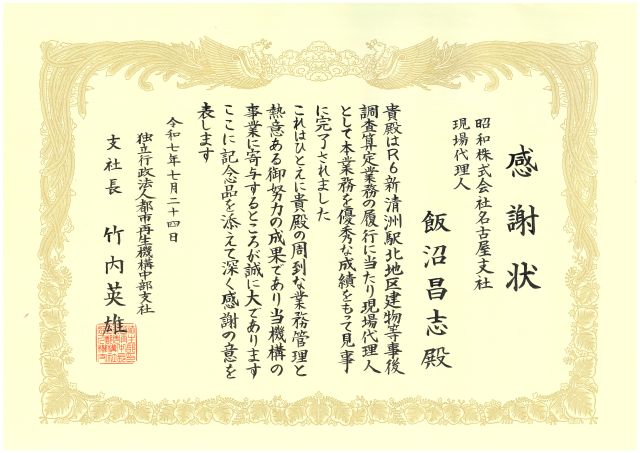 感謝状
昭和株式会社名古屋支社
現場代理人
飯沼昌志殿
貴殿はR6新清洲駅北地区建物等事後
調査算定業務の履行に当たり現場代理人
として本業務を優秀な成績をもって見事
に完了されました
これはひとえに貴殿の周到な業務管理と
熱意ある御努力の成果であり当機構の
事業に寄与するところが誠に大であります
ここに記念品を添えて深く感謝の意を
表します
令和七年七月二十四日
独立行政法人都市再生機構中部支社
支社長 竹内英雄